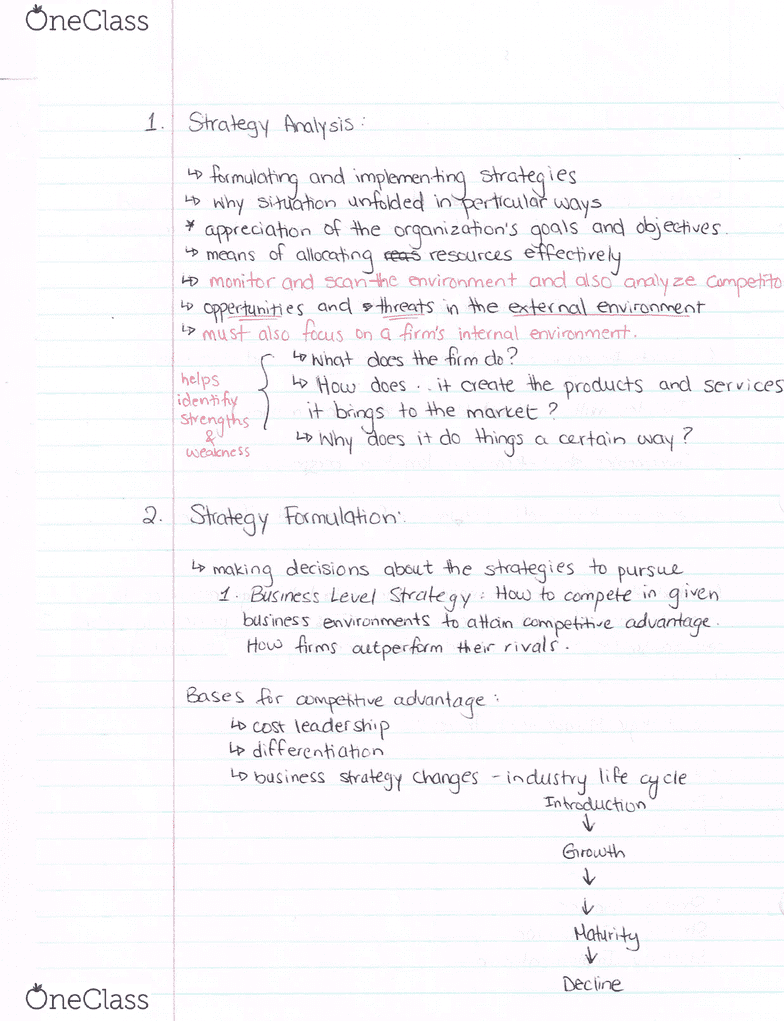 OneClass
1. Strategy Analysis:
↳ formulating and implementing strategies
↳ why situation unfolded in perticular ways
* appreciation of the organization's goals and objectives.
↳ means of allocating resources effectively
↳ monitor and scan the environment and also analyze competito
↳ oppertunities and threats in the external environment
↳ must also focus on a firm's internal environment.
↳ What does the firm do?
helps
↳ How does .. it create the products and services
identify
it brings to the market?
strengths
&
↳ Why does it do things a certain way?
weakness
2. Strategy Formulation:
↳ making decisions about the strategies to pursue
1. Business Level Strategy: How to compete in given
business environments to attain competitive advantage.
How firms outperform their rivals.
Bases for competitive advantage:
↳ cost leadership
↳ differentiation
↳ business strategy changes - industry life cycle
Introduction
↓
Growth
↓
↓
Maturity
↓
Decline
OneClass